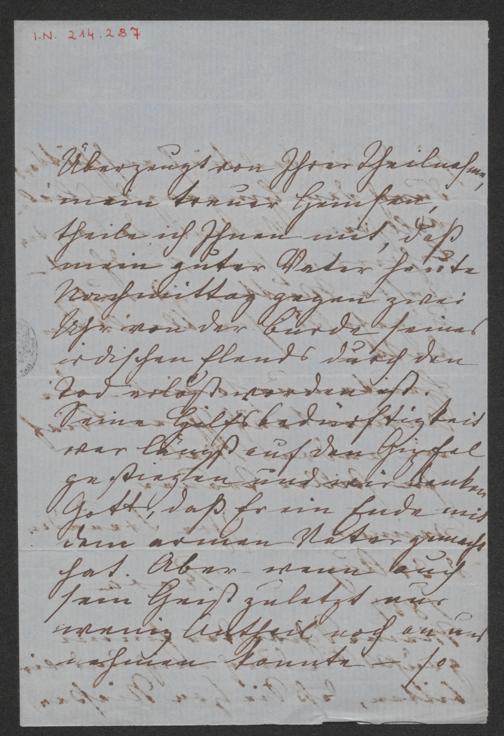 I.N. 214.287
Überzeugt von Ihrer Theilnahme,
mein treuer
theile ich Ihnen mit, daß
mein guter Vater heute
Nachmittag gegen zwei
Uhr von der Bürde seines
irdischen Elends durch den
Tod erlöst worden ist.
Seine Hilfsbedürftigkeit
war längst auf den Gipfel
gestiegen und wir danken
Gott, daß Er ein Ende mit
dem armen Vater gemacht
hat. Aber – wenn auch
sein Geist zuletzt nur
wenig Antheil noch an uns
nehmen konnte – so